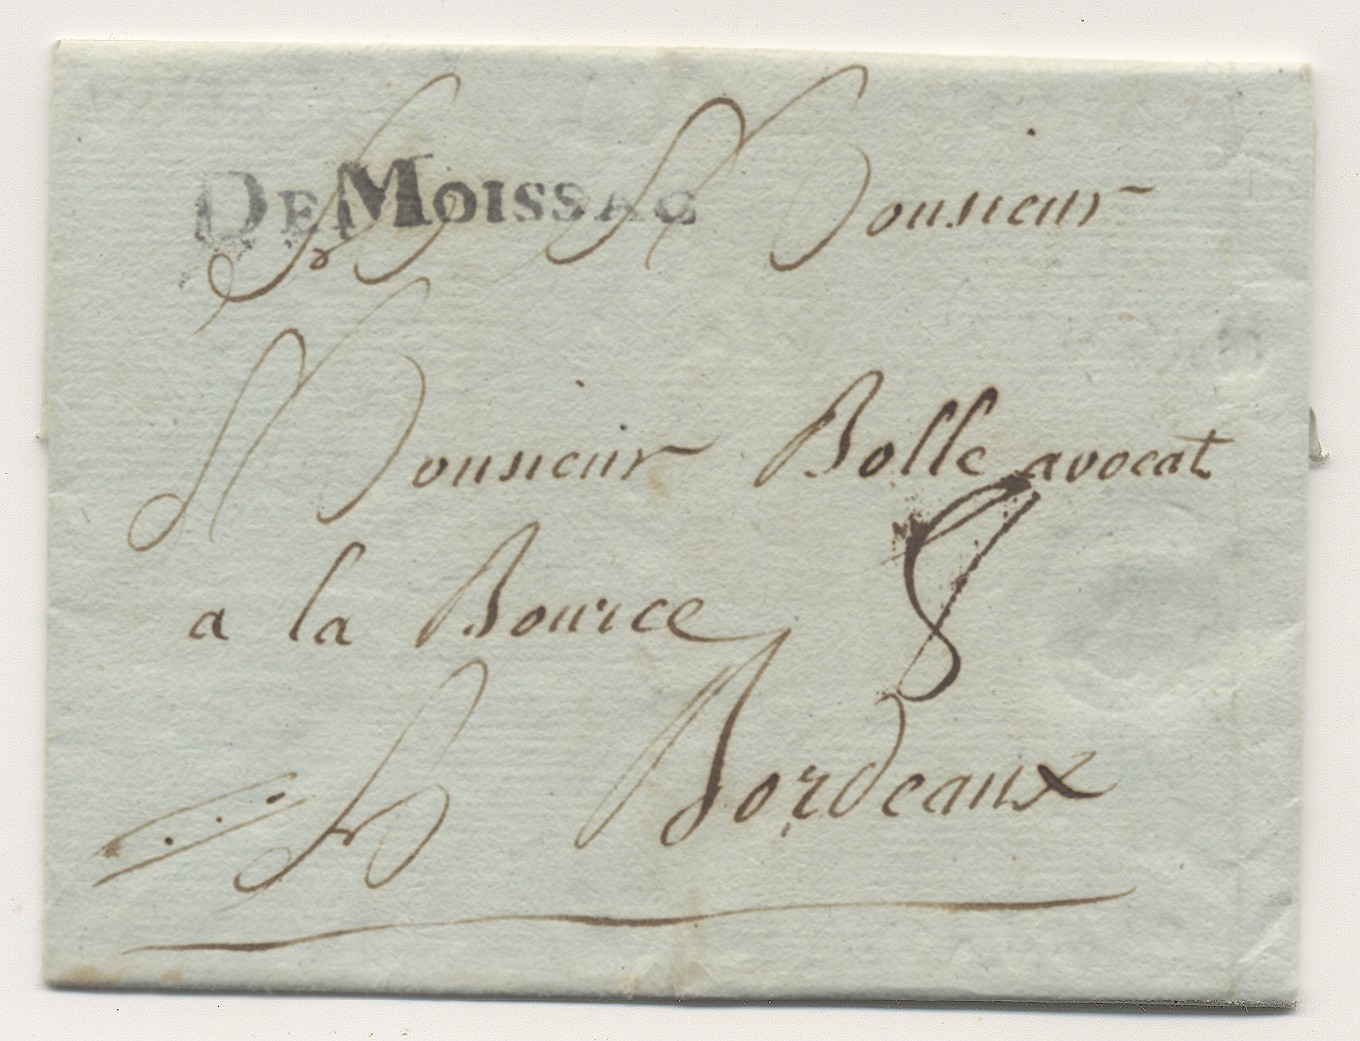 DE MOISSAC
Monsieur
Monsieur Bolle avocat
a la Bource
8
Bordeaux